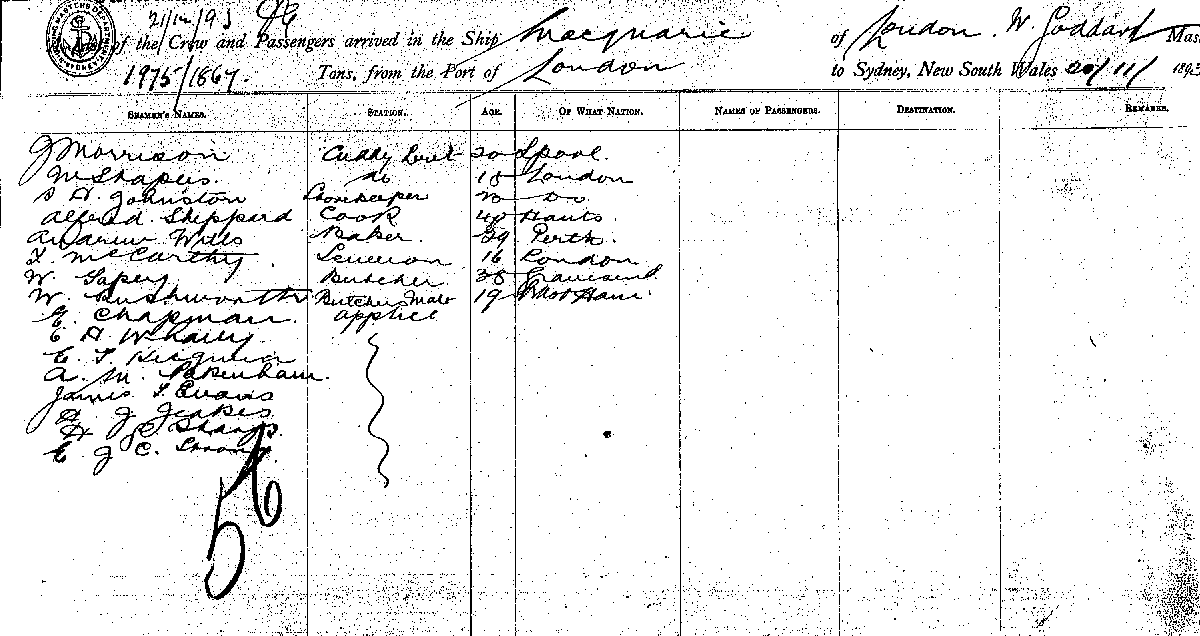 21/11/93
of the Crew and Passengers arrived in the Ship Macquarie of London. W. Goddard Mas
1975/1867. Tons, from the Port of London to Sydney, New South Wales 20/11/ 1893
Seamen's Names. Station. Age. Of What Nation. Names of Passengers. Destination. Remarks.
J Morrison Cuddy Servt 20 Lpool.
do 18 London
S H. Johnston Storekeeper Do
Alfred. Sheppard Cook 40 Hants.
Andrew Wills Baker. 29 Perth.
McCarthy. 16 London
W. Butcher 38 Gravesend
W. Rushworth Butchers Mate 19
E. Chapman. apptice
E. H. Whalley
E. T.
A. M. Pakenham.
James T. Evans
H. J. Jeakes
H. Sharp.
E. J. C. Strong.
56